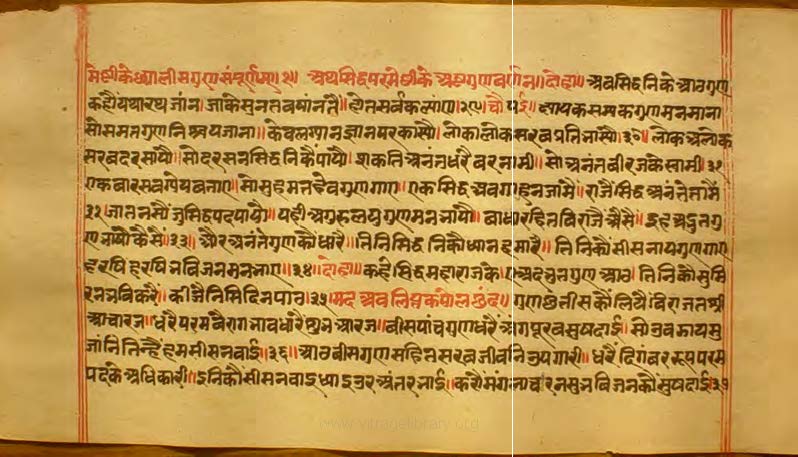 मेष्टीकेछ्यालीसगुणसंपूर्णम् अथसिद्धपरमेष्टीके अष्टगुणवर्णन॥दोहा॥ अबसिद्धनिके आठगुण
कहौंयथारथजांन॥जाकेसुनतबषांनतैं॥होतसर्वकल्याण॥२९॥चौपई॥ष्यायकसम्यकगुणमनमाना
सोसमतगुणनिश्चयजाना॥केवलग्यानज्ञानपरकास्यौ॥लोकालोकसरबप्रतिभास्यौ॥३०॥लोकअलोक
सरबदरसायौ॥सोदरसनसिद्धनिकैंपायौ॥शकतिअनंतधरैबरनामी॥सोअनंतबीरजकेस्वामी॥३१
एकबारसबज्ञेयबताए॥सोसुहमतहेवगुणगाए॥एकसिद्धअवगाहनजामैं॥राजैंसिद्धअनंतेतामैं
३२॥जातनसौंजुसिद्धपदपायौ॥यहीअगुरुलघुगुणमनभायौ॥बाधारहितविराजैअैसैं॥इहअद्भुतगु
णभाष्यौकैसैं॥३३॥औरअनंतेगुणकौंधारै॥तिनिसिद्धनिकौध्यानहमारै॥तिनिकौंसीसनायगुणगाए
हरषिहरषिभविजनमनभाए॥३४॥दोहा॥कहेसिद्धमहाराजके॥एअदभुतगुणआठ॥तिनिकौंसुमि
रनभविकरैं॥कीजैनिसिदिनपाठ॥३५॥मदअवलिप्तकपोलछंद॥गुणछतीसकौंलियैंविराजतश्री
आचारज॥धरैंपरमवैरागभावधारैंछुनआरज॥बीसपांचगुणधरैंअंगपूरबसुषदाई॥सोउवझायसु
जांनितिन्हैंहमसीसनवाई॥३६॥आठबीसगुणसहितसरबजीवनिउपगारी॥धरैंदिगंबररूपपरम
पदकेअधिकारी॥इनिकौंसीसनवाइध्याइउरअंतरभाई॥करौंमंगलाचरनसुनबिजनकौंसुषदाई॥३७
www.vitragelibrary.org